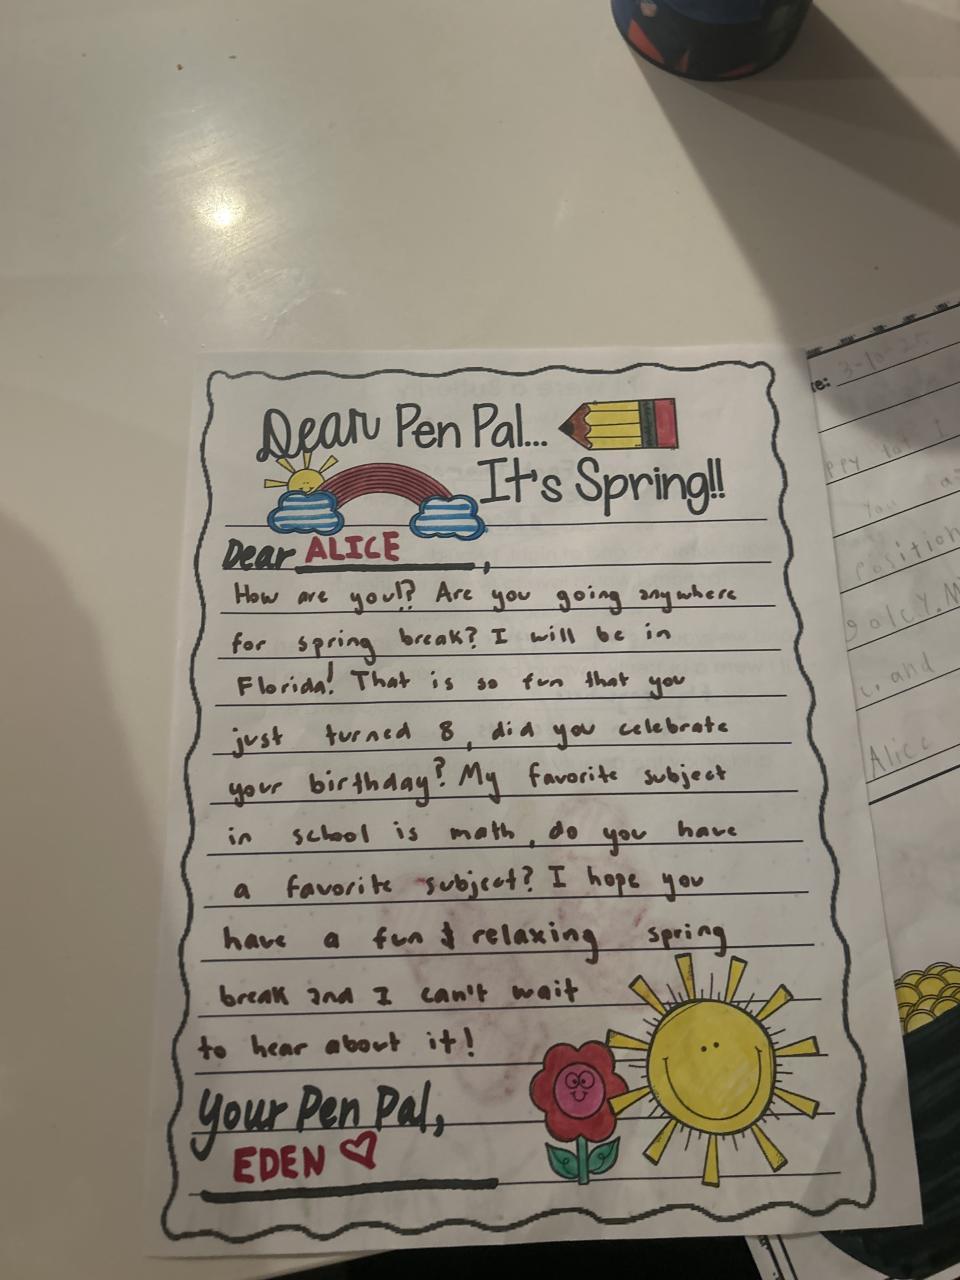 Dear Pen Pal...
It's Spring!!
Dear ALICE,
How are you!? Are you going anywhere
for spring break? I will be in
Florida! That is so fun that you
just turned 8, did you celebrate
your birthday? My favorite subject
in school is math, do you have
a favorite subject? I hope you
have a fun & relaxing spring
break and I can't wait
to hear about it!
Your Pen Pal,
EDEN
te: 3-10-25
ppy
You
position
and
Alice